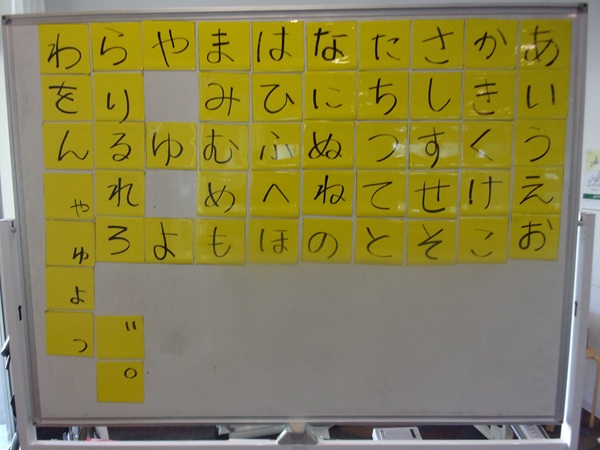 あいうえお
かきくけこ
さしすせそ
たちつてと
なにぬねの
はひふへほ
まみむめも
やゆよ
らりるれろ゛゜
わをんゃゅょっ